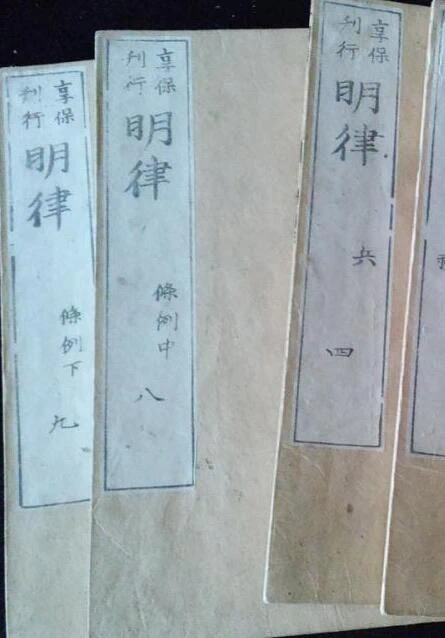 享保
刊行
明律
條例下
九
享保
刊行
明律
條例中
八
享保
刊行
明律
兵
四